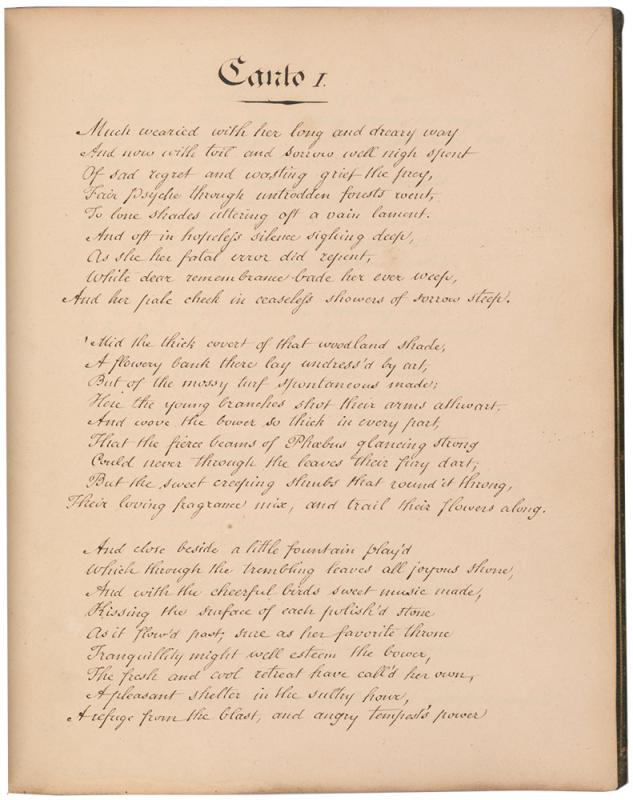 Canto I.
Much wearied with her long and dreary way
And now with toil and sorrow well nigh spent
Of sad regret and wasting grief the prey,
Fair Psyche through untrodden forests went,
To lone shades uttering oft a vain lament.
And oft in hopeless silence sighing deep,
As she her fatal error did repent,
While dear remembrance bade her ever weep,
And her pale cheek in ceaseless showers of sorrow steep.
'Mid the thick covert of that woodland shade,
A flowery bank there lay undress'd by art,
But of the mossy turf spontaneous made;
Here the young branches shot their arms athwart,
And wove the bower so thick in every part,
That the fierce beams of Phœbus glancing strong
Could never through the leaves their fury dart;
But the sweet creeping shrubs that round it throng,
Their loving fragrance mix, and trail their flowers along.
And close beside a little fountain play'd
Which through the trembling leaves all joyous shone,
And with the cheerful birds sweet music made,
Kissing the surface of each polish'd stone
As it flow'd past; sure as her favorite throne
Tranquillity might well esteem the bower,
The fresh and cool retreat have call'd her own,
A pleasant shelter in the sultry hour,
A refuge from the blast, and angry tempest's power